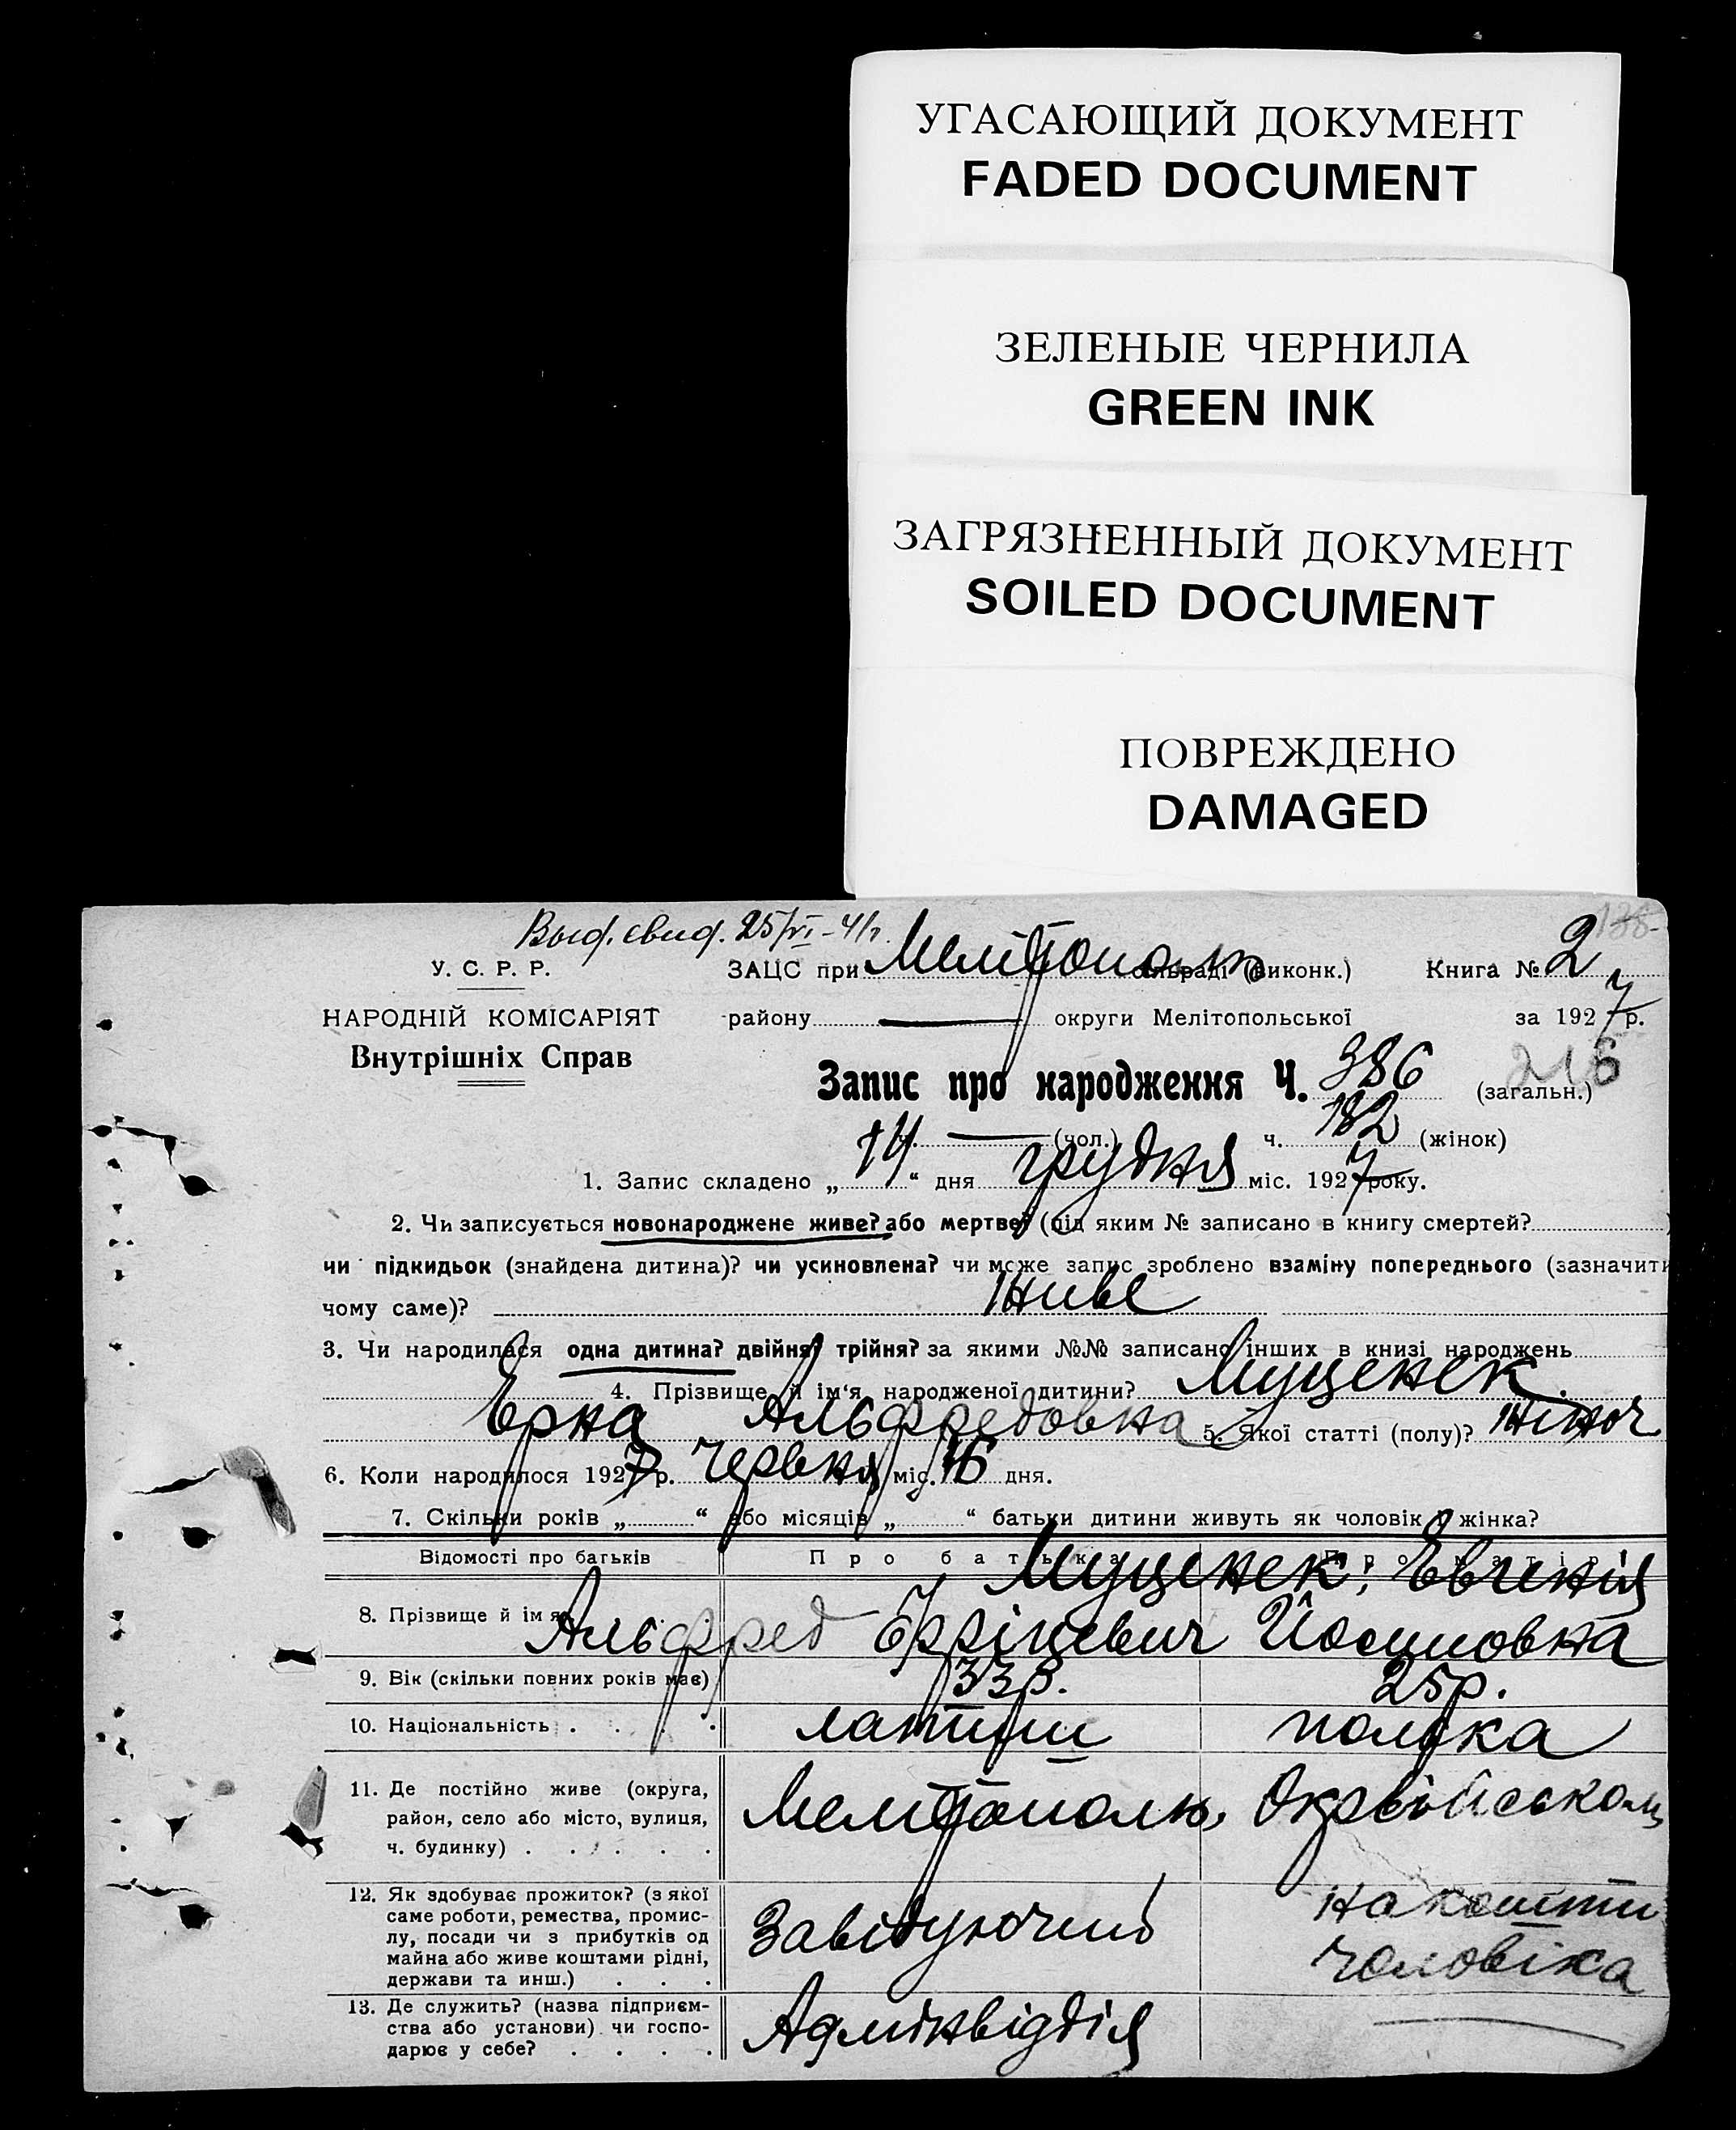 УГАСАЮЩИЙ ДОКУМЕНТ
FADED DOCUMENT
ЗЕЛЕНЫЕ ЧЕРНИЛА
GREEN INK
ЗАГРЯЗНЕННЫЙ ДОКУМЕНТ
SOILED DOCUMENT
ПОВРЕЖДЕНО
DAMAGED
Выд. свид. 25/VI-41г.
У. С. Р. Р.
ЗАЦС при Мелітополь сільраді (виконк.) Книга № 2
НАРОДНІЙ КОМІСАРІЯТ
району — округи Мелітопольської за 1927 р.
Внутрішніх Справ
Запис про народження Ч. 386 (загальн.)
216
— (чол.) ч. 182 (жінок)
1. Запис складено „14“ дня грудня міс. 1927 року.
2. Чи записується новонароджене живе? або мертве? (під яким № записано в книгу смертей?
чи підкидьок (знайдена дитина)? чи усиновлена? чи може запис зроблено взаміну попереднього (зазначити
чому саме)? Живе
3. Чи народилася одна дитина? двійня? трійня? за якими №№ записано інших в книзі народжень
4. Прізвище й ім‘я народженої дитини? Муценек.
Ерна Альфредовна 5. Якої статті (полу)? жіноч
6. Коли народилося 1927 р. червня міс. 16 дня.
7. Скільки років „ “ або місяців „ “ батьки дитини живуть як чоловік й жінка?
Відомості про батьків Про батька Про матір
8. Прізвище й ім‘я Муценек; Євгенія
Альфред Фріцевич
9. Вік (скільки повних років має) 33р. 25р.
10. Національність латиш полька
11. Де постійно живе (округа, район, село або місто, вулиця, ч. будинку) Мелітополь,
12. Як здобуває прожиток? (з якої саме роботи, ремества, промислу, посади чи з прибутків од майна або живе коштами рідні, держави та инш.) Завідуючий
на кошти
чоловіка
13. Де служить? (назва підприємства або установи) чи господарює у себе? Адмінвідділ